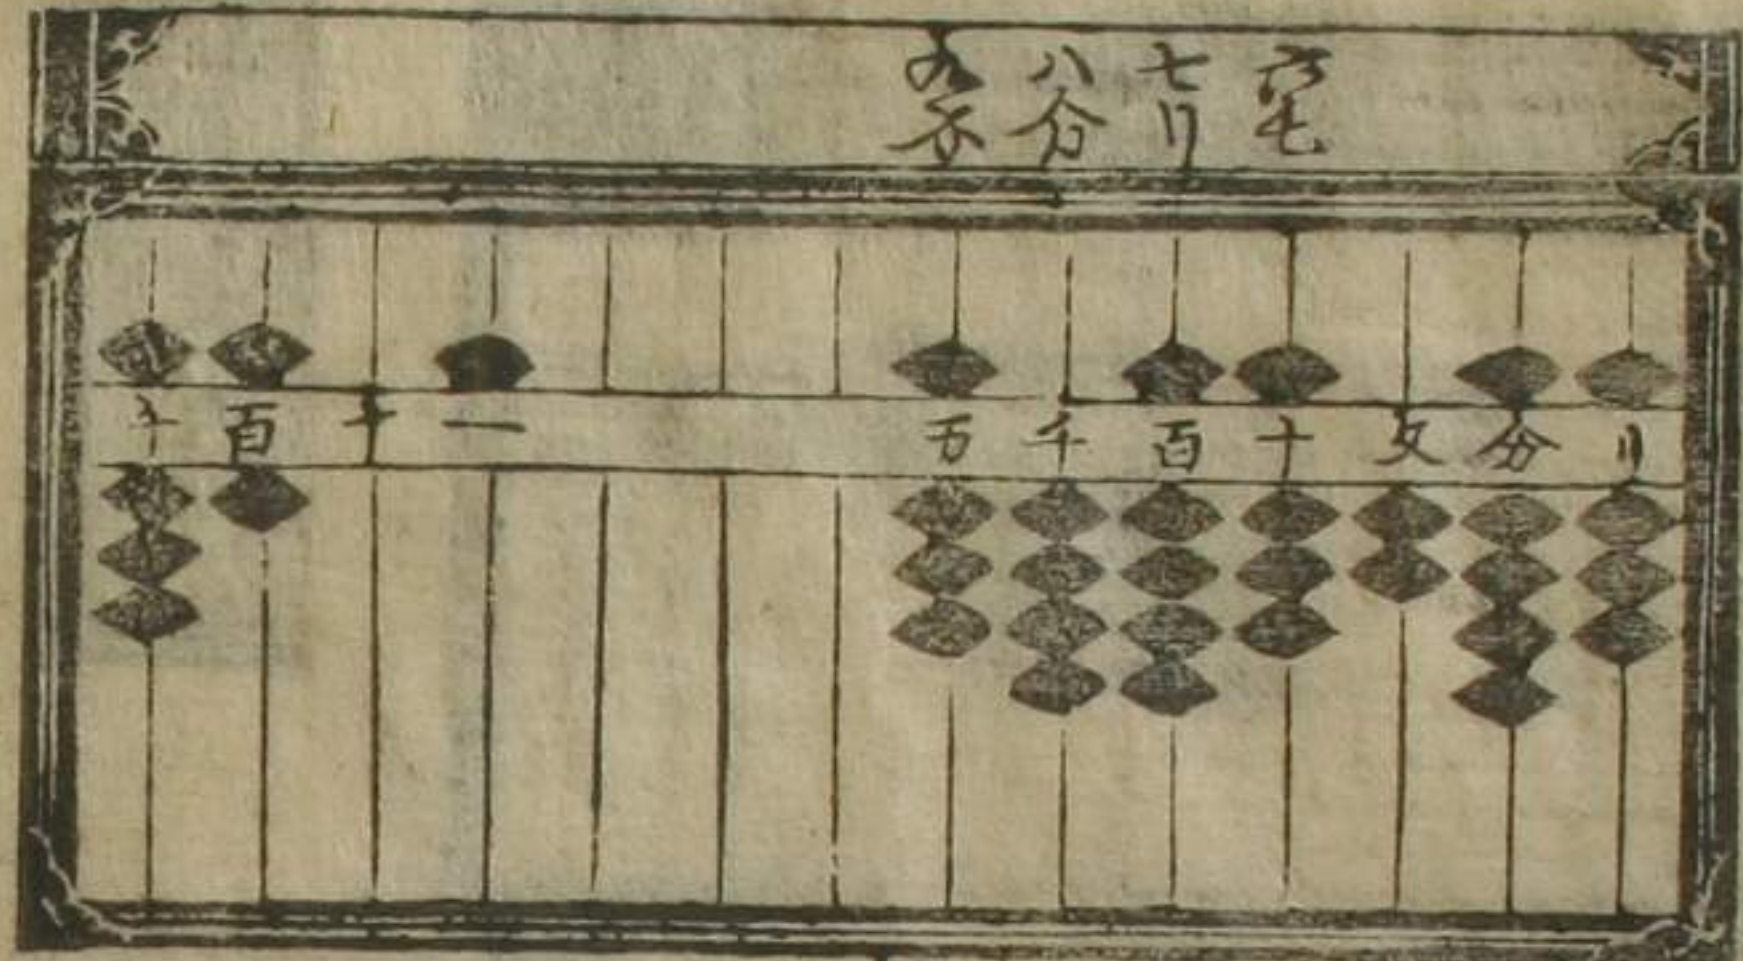 九
八分
七リ
六毛
千 百 十 一 万 千 百 十 文 分 リ